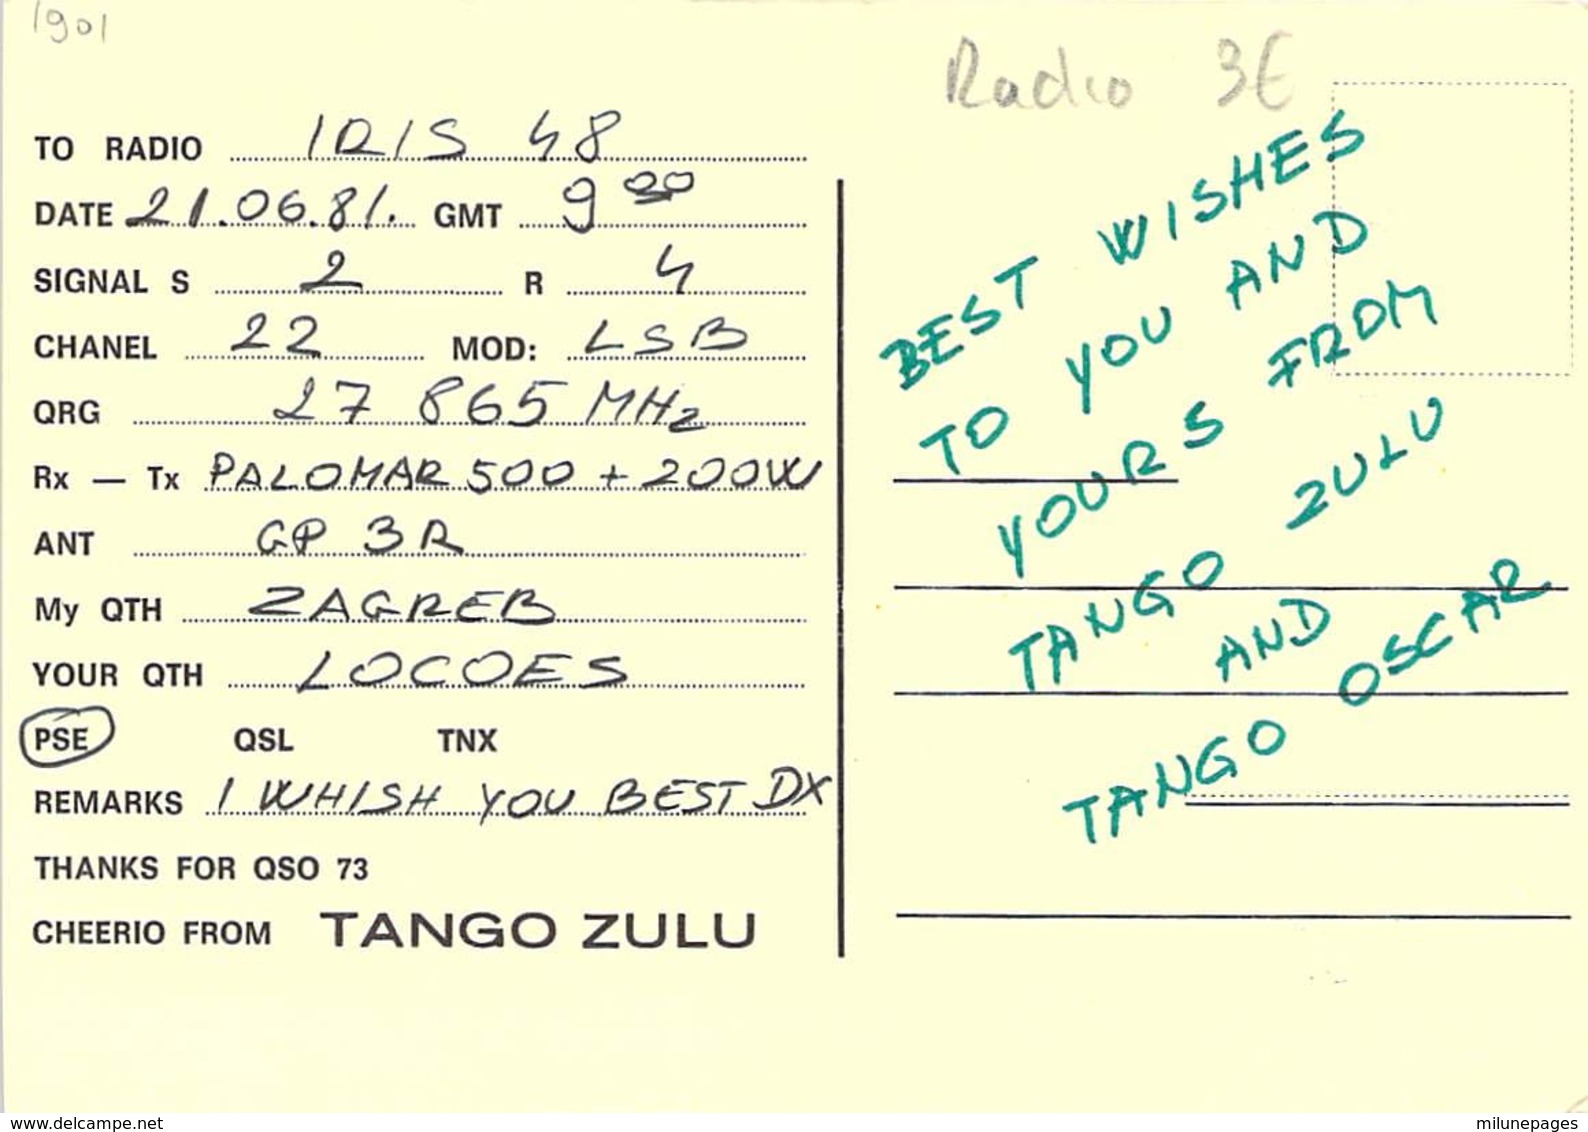 1901
Radio 3€
TO RADIO IRIS 48
DATE 21.06.81. GMT 9 00
SIGNAL S 2 R 4
CHANEL 22 MOD: LSB
QRG 27 865 MHz
Rx — Tx PALOMAR 500 + 200W
ANT GP 3R
My QTH ZAGREB
YOUR QTH LOCOES
PSE QSL TNX
REMARKS I WHISH YOU BEST DX
THANKS FOR QSO 73
CHEERIO FROM TANGO ZULU
BEST WISHES
TO YOU AND
YOURS FROM
TANGO ZULU
AND
TANGO OSCAR
www.delcampe.net
milunepages